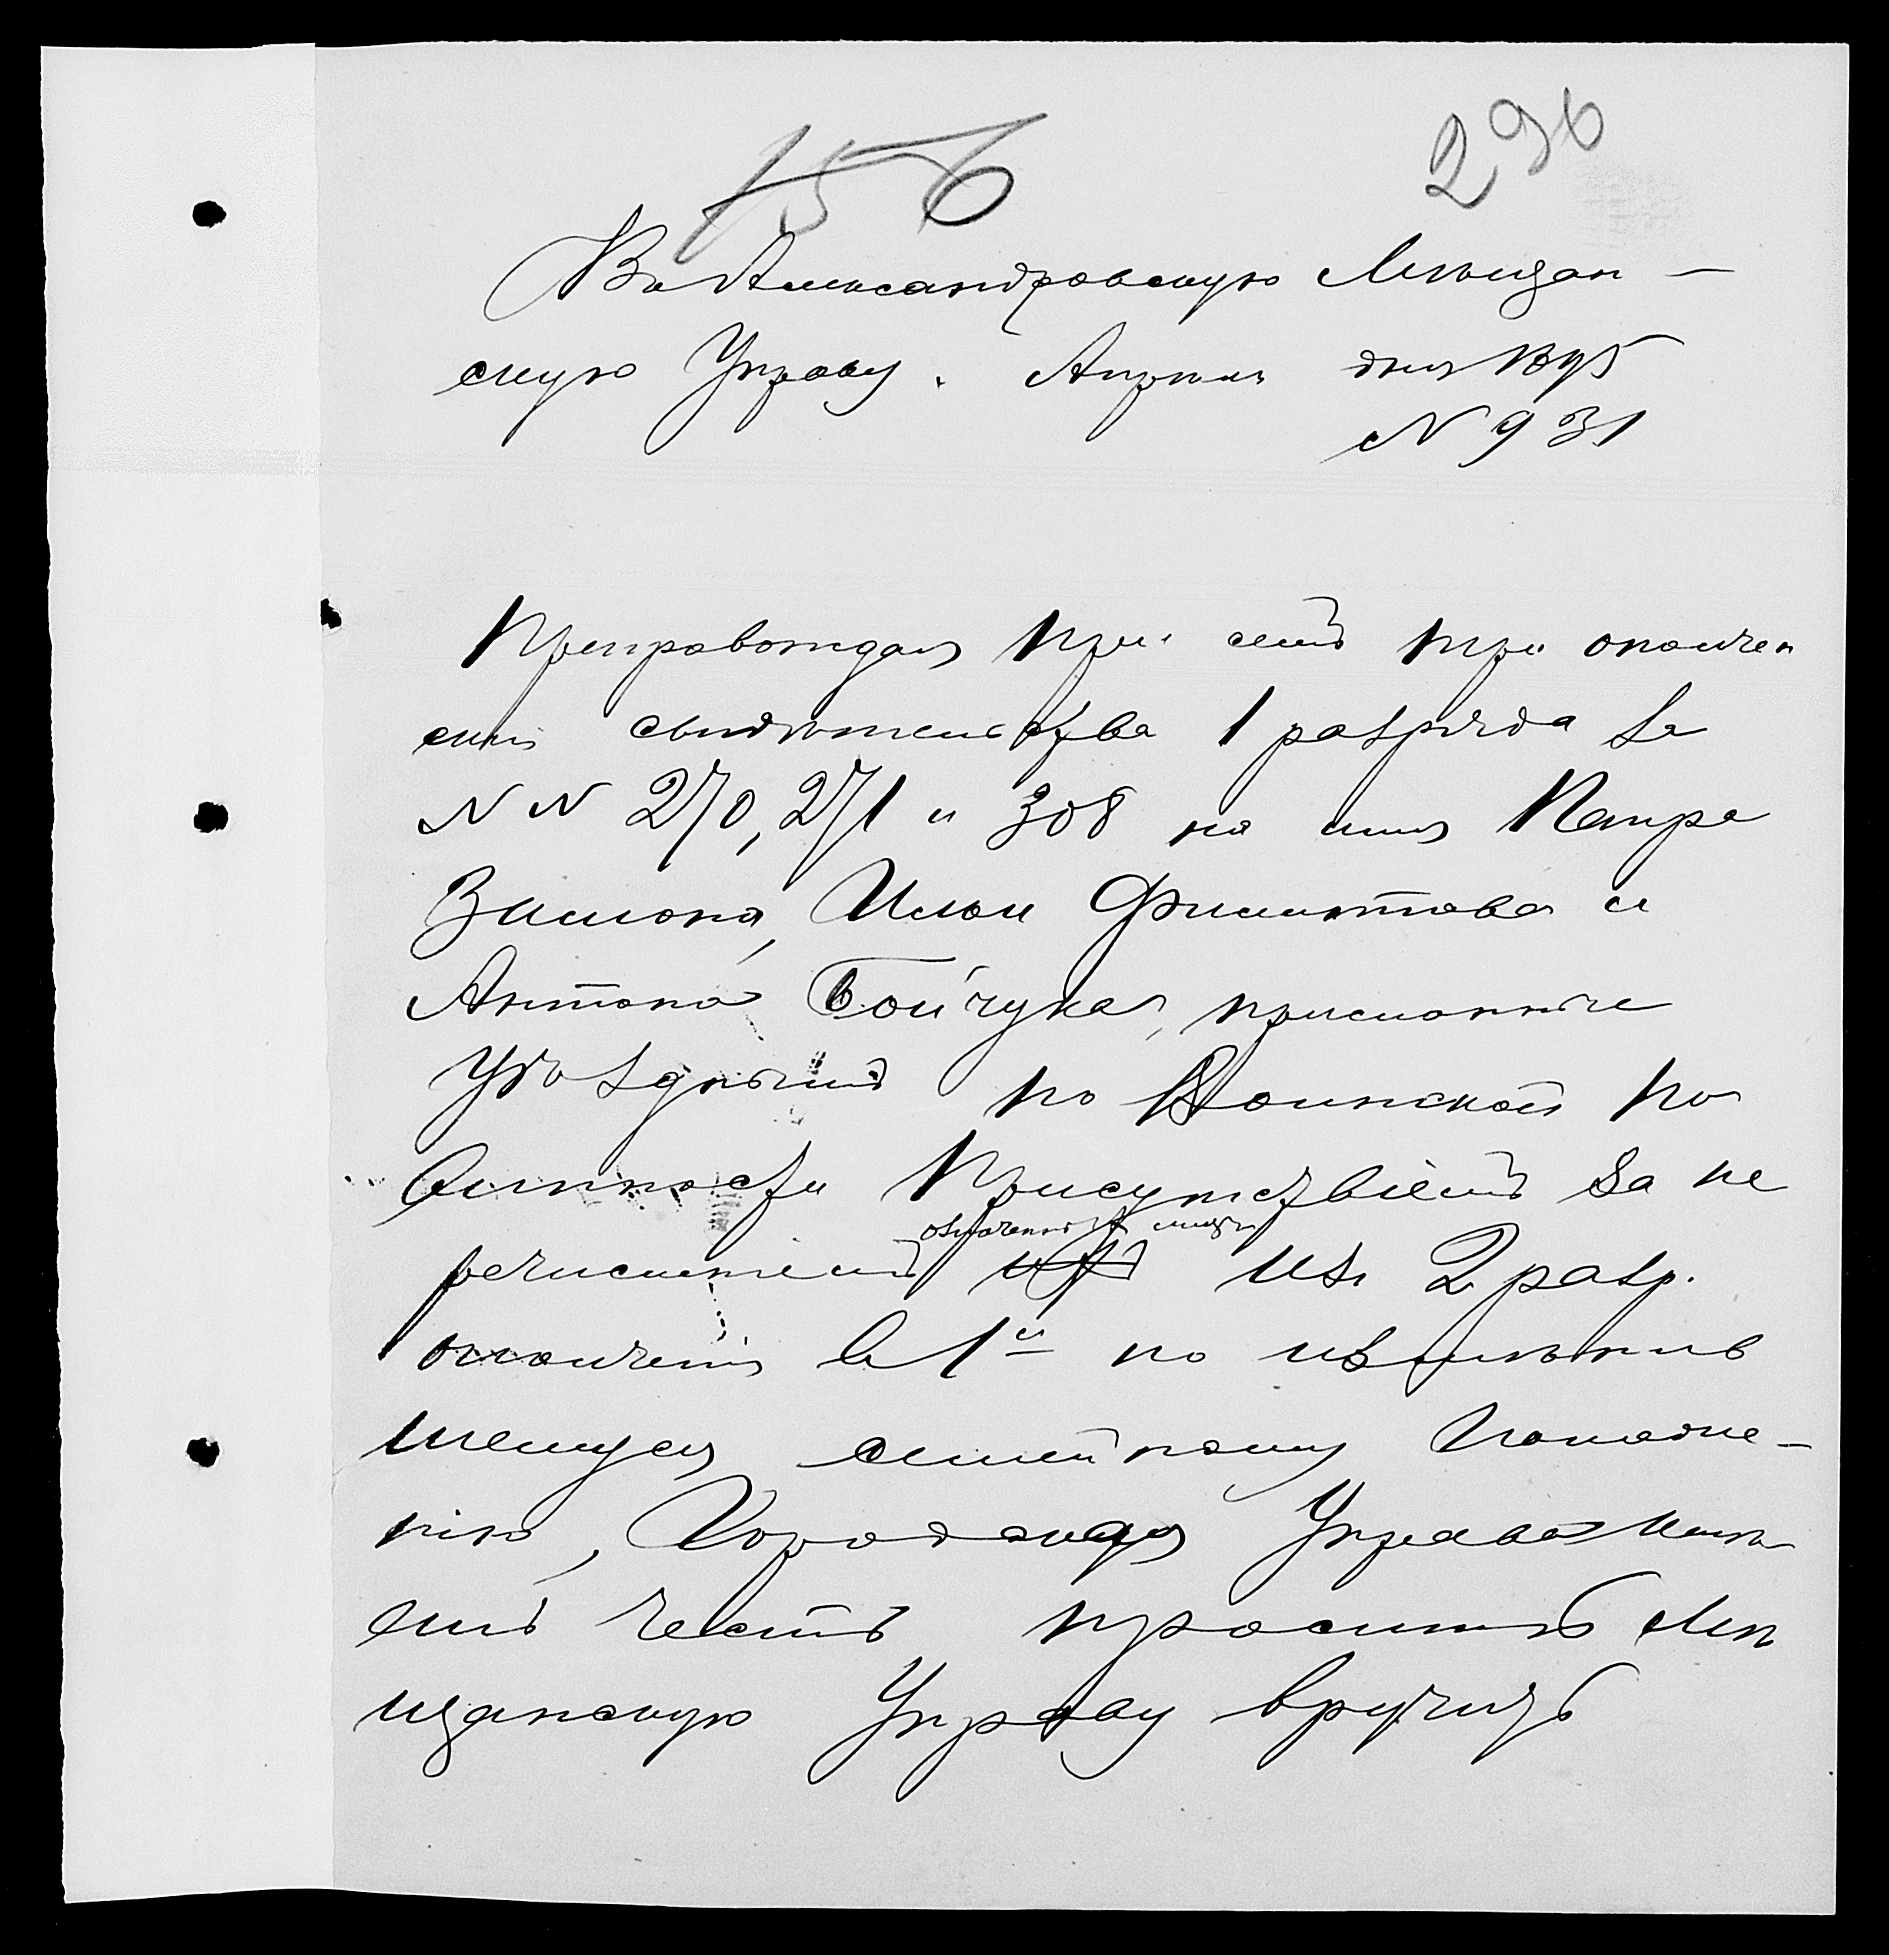 156
296
Въ Александровскую Мѣщан-
скую Управу. Апрѣля дня 1895
N 931
Препровождая при семъ три ополчен
скія свидѣтельства 1 разряда за
NN 270, 271 и 308 на имя Петра
Зимона, Ильи Филиптова и
Антона Бойчука, присланныя
Уѣзднымъ по Воинской по
винности Присутствіемъ за пе
речисленіемъ означенныхъ лицъ изъ 2 разр.
ополченія в 1й по измѣнив
шемуся семейному положе-
нію, Городская Управа имѣ
етъ честь проситъ Мѣ
щанскую Управу вручить